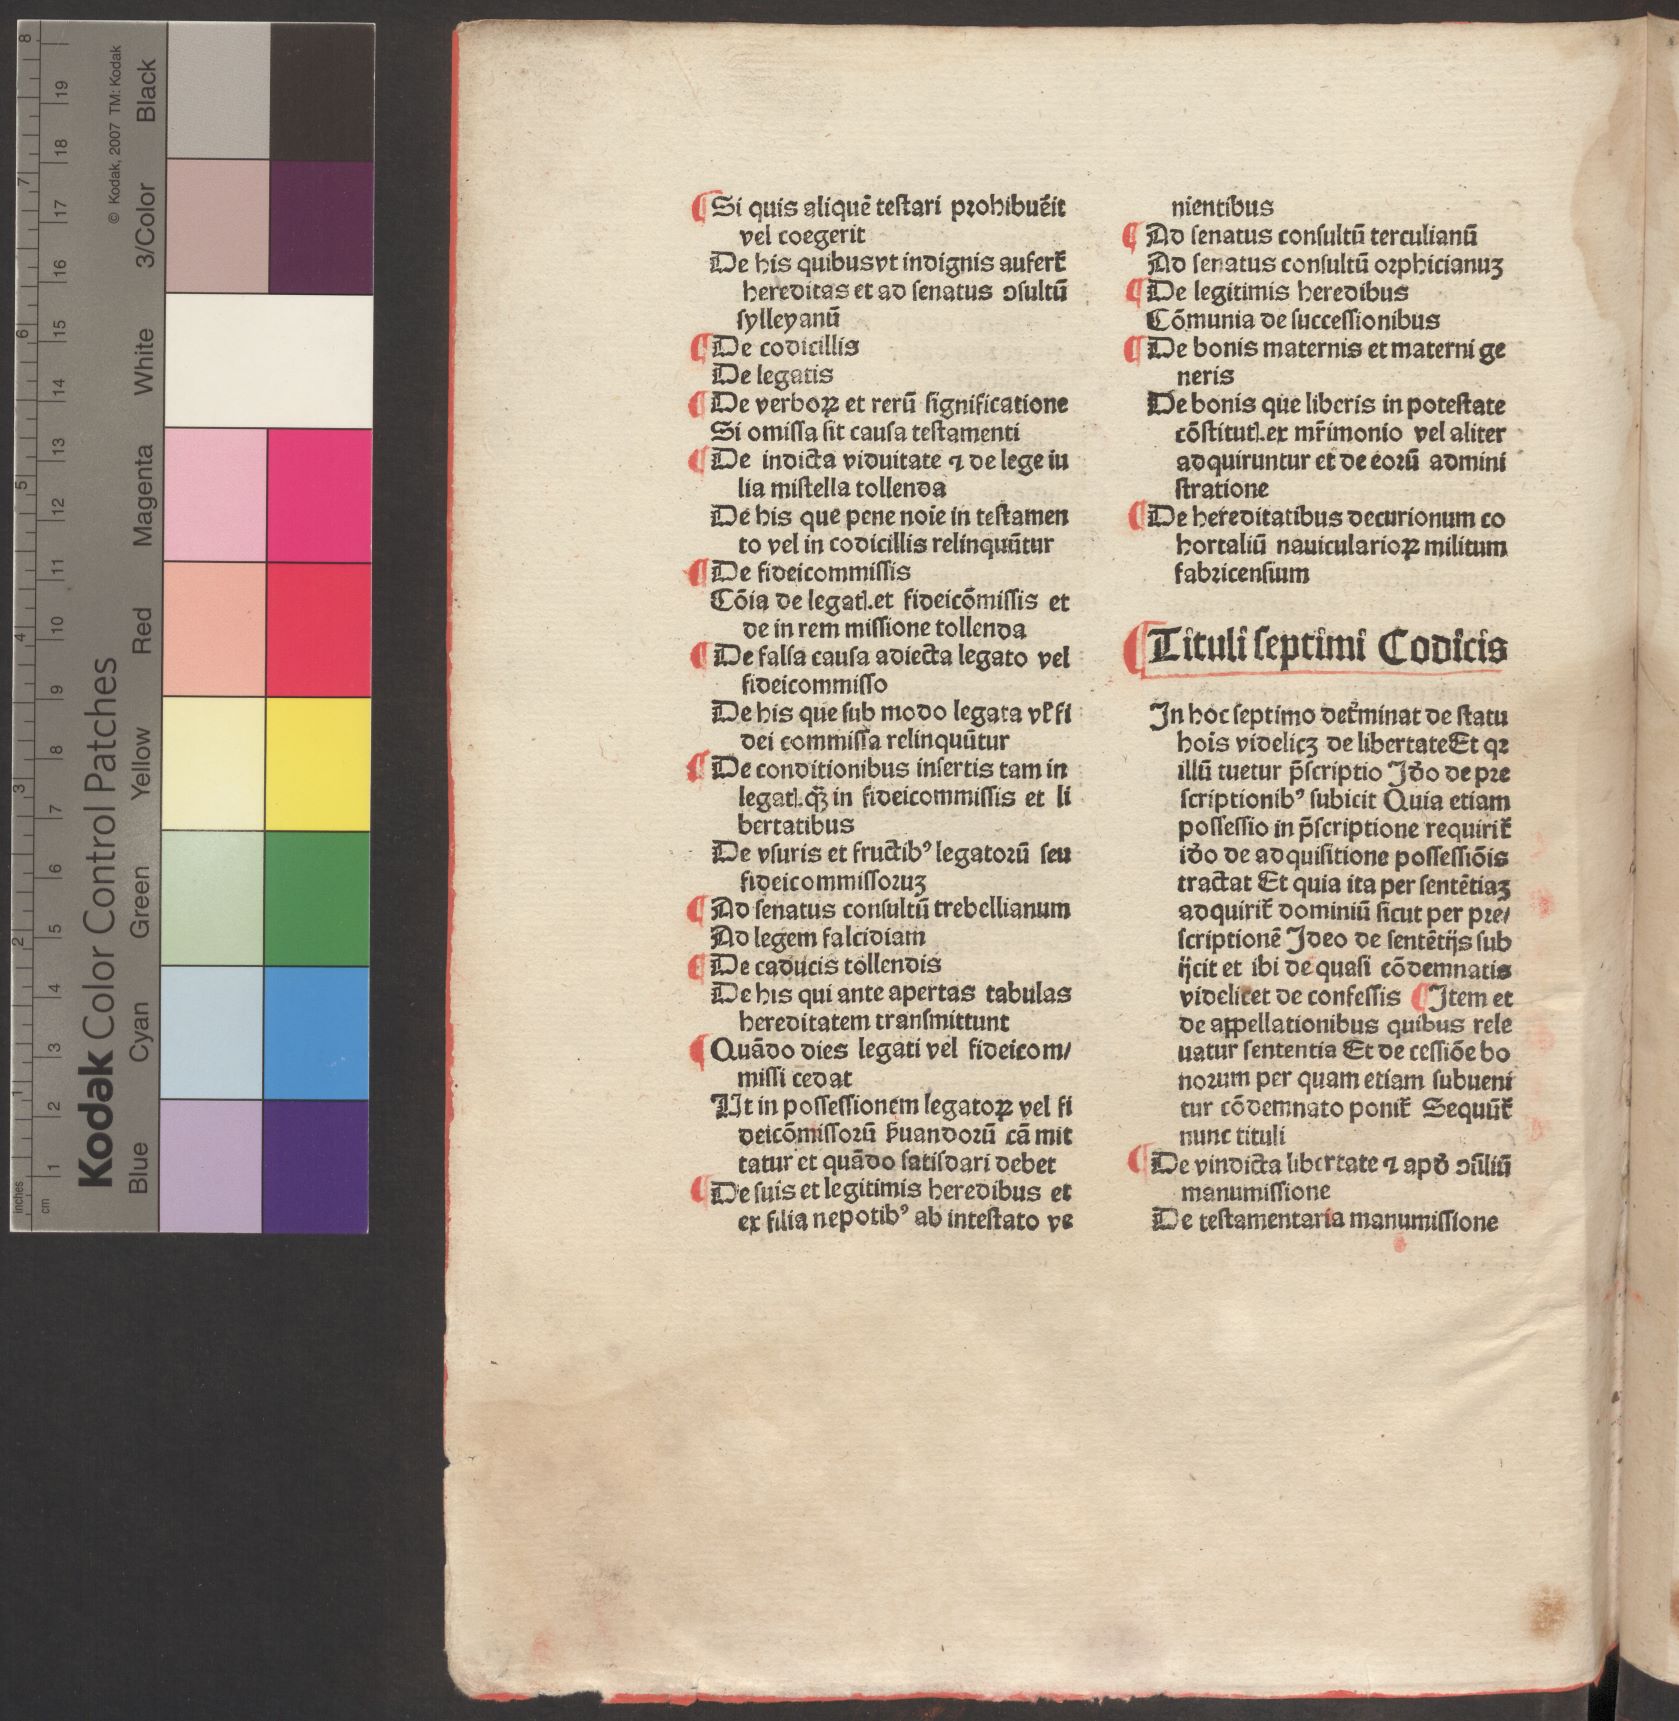 ¶ Si quis aliquē testari prohibuēit
vel coegerit
De his quibusvt indignis aufert᷑
hereditas et ad senatus ↄsultū
sylleyanū
¶ De codicillis
De legatis
¶ De verboꝝ et rerū significatione
Si omissa sit causa testamenti
¶ De indicta viduitate ⁊ de lege iu
lia mistella tollenda
De his que pene noīe in testamen
to vel in codicillis relinquūtur
¶ De fideicommissis
Cōia de legatꝭ.et fideicōmissis et
de in rem missione tollenda
¶ De falsa causa adiecta legato vel
fideicommisso
De his que sub modo legata vƚ fi
dei commissa relinquūtur
¶ De conditionibus insertis tam in
legatꝭ.qꝫ̄ in fideicommissis et li
bertatibus
De vsuris et fructibꝰ legatorū seu
fideicommissoruꝫ
¶ Ad senatus consultū trebellianum
Ad legem falcidiam
¶ De caducis tollendis
De his qui ante apertas tabulas
hereditatem transmittunt
¶ Quādo dies legati vel fideicom/
missi cedat
Ut in possessionem legatoꝝ vel fi
deicōmissorū ẜuandorū cā mit
tatur et quādo satisdari debet
¶ De suis et legitimis heredibus et
ex filia nepotibꝰ ab intestato ve
nientibus
¶ Ad senatus consultū terculianū
Ad senatus consultū orphicianuꝫ
¶ De legitimis heredibus
Cōmunia de successionibus
¶ De bonis maternis et materni ge
neris
De bonis que liberis in potestate
cōstitutꝭ.ex mr̄imonio vel aliter
adquiruntur et de eorū admini
stratione
¶ De hereditatibus decurionum co
hortaliū nauiculatioꝝ militum
fabricensium
¶ Tituli septimi Codicis
In hoc septimo det᷑minat de statu
hoīs videlicꝫ de libertate Et qꝛ
illū tuetur p̄scriptio Iđo de pre
scriptionibꝰ subicit Quia etiam
possessio in p̄scriptione requirit᷑
iđo de adquisitione possessiōis
tractat Et quia ita per sentētiaꝫ
adquirit᷑ dominiū sicut per pre/
scriptionē Ideo de sentētijs sub
ijcit et ibi de quasi cōdemnatis
videlicet de confessis ¶ Item et
de appellationibus quibus rele
uatur sententia Et de cessiōe bo
norum per quam etiam subueni
tur cōdemnato ponit᷑ Sequūt᷑
nunc tituli
¶ De vindicta libertate ⁊ apđ ↄsiliū
manumissione
De testamentaria manumissione
Kodak Color Control Patches
© Kodak, 2007 TM: Kodak
Blue Cyan Green Yellow Red Magenta White 3/Color Black
inches 1 2 3 4 5 6 7 8
cm 1 2 3 4 5 6 7 8 9 10 11 12 13 14 15 16 17 18 19